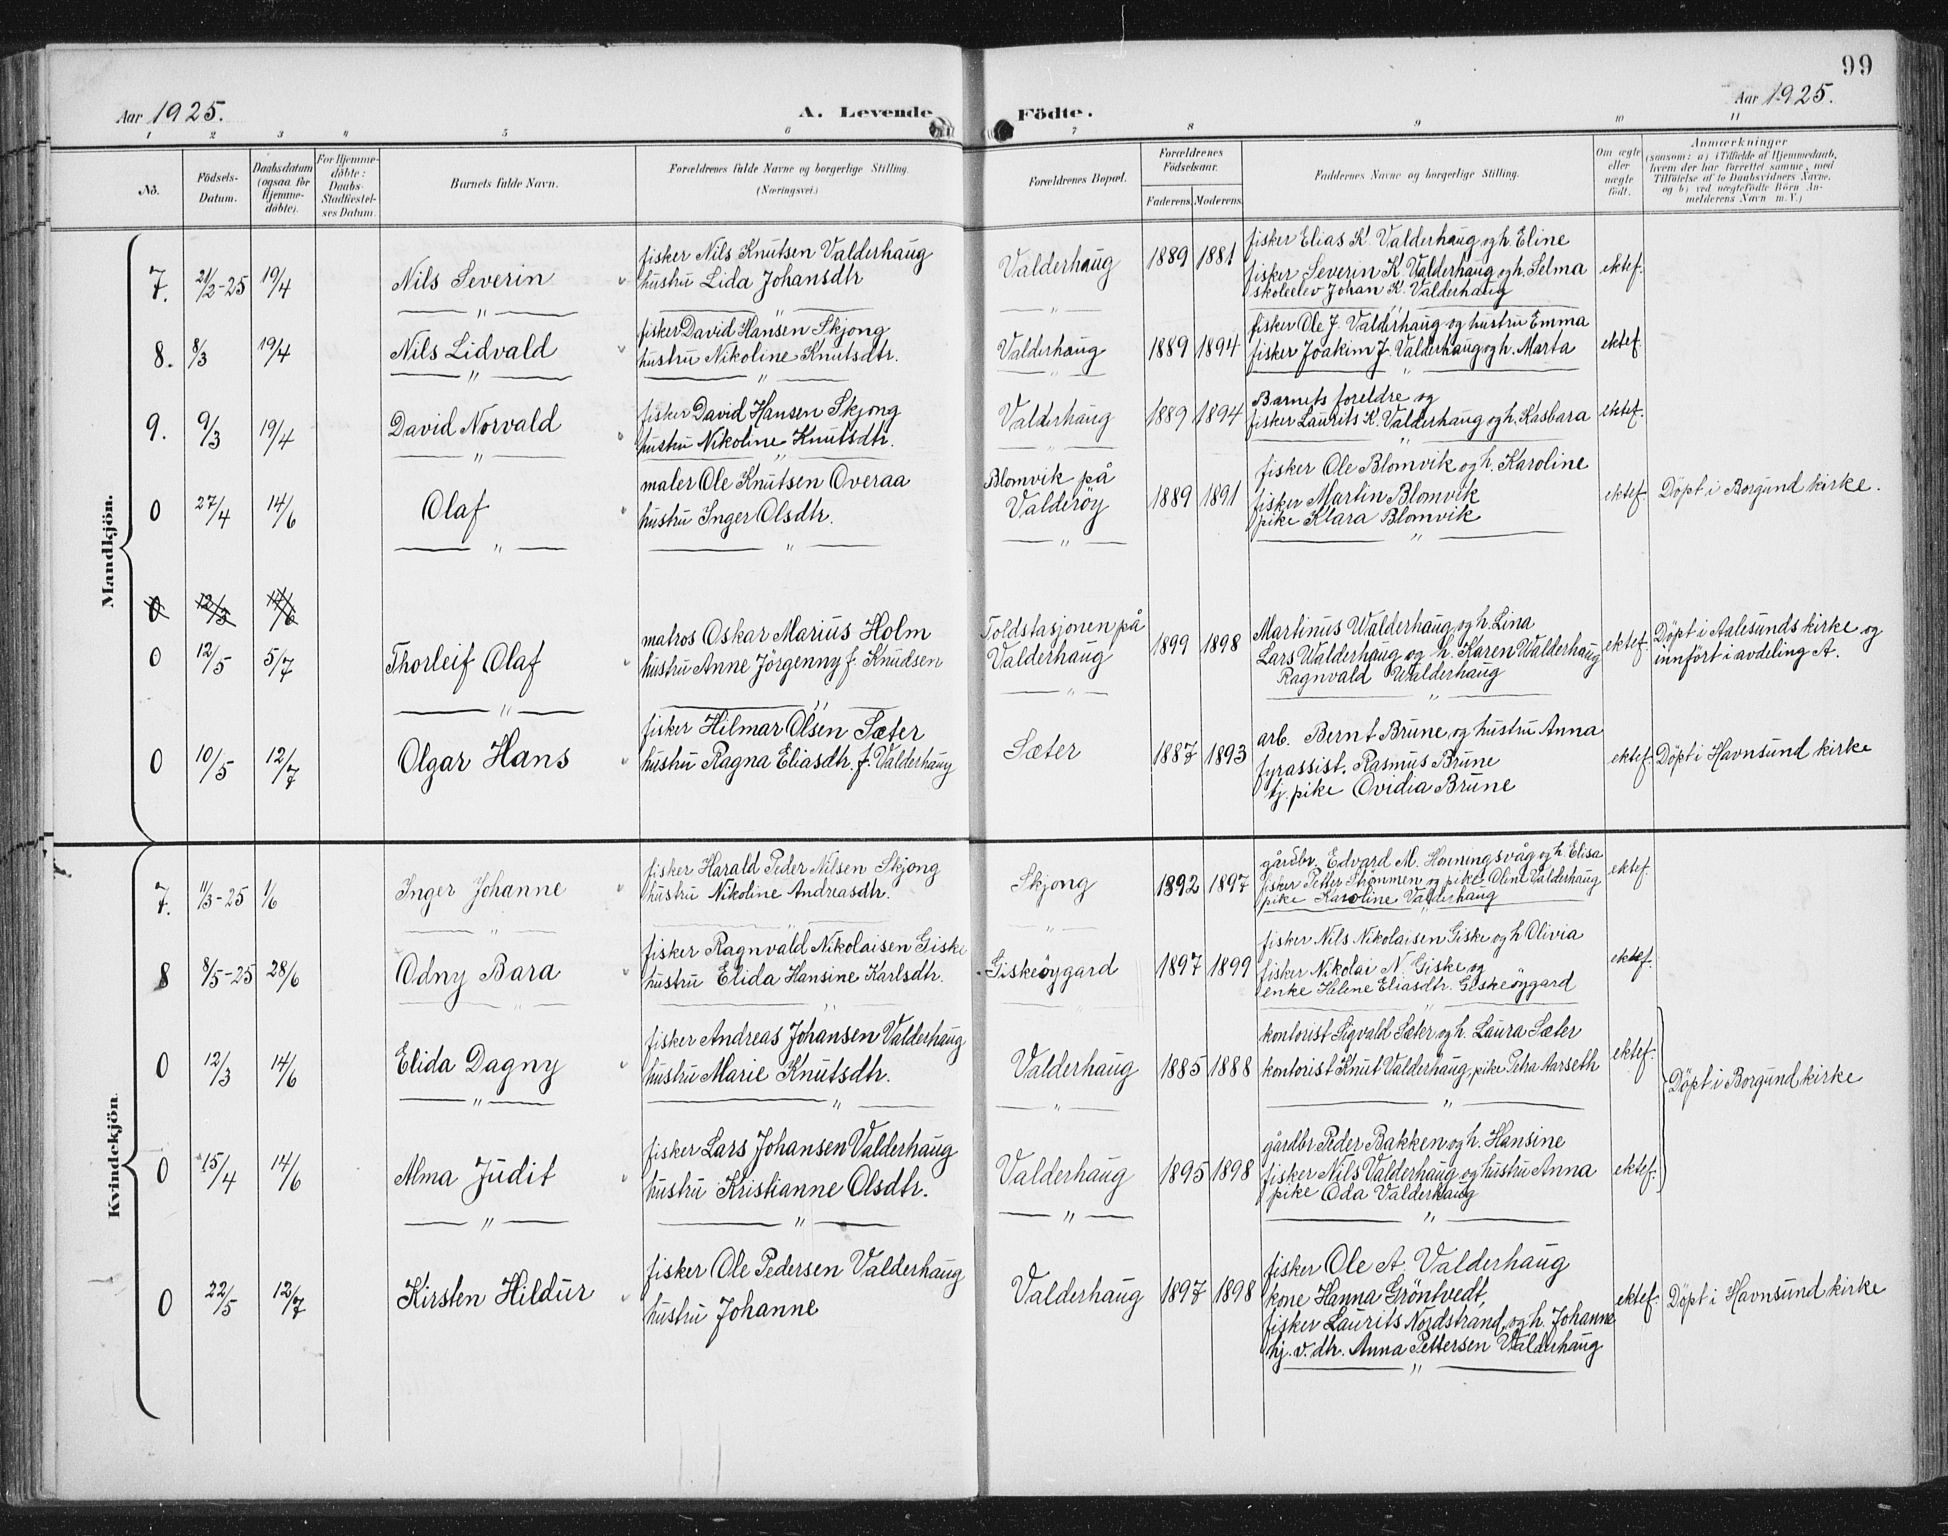 99
Aar 1925.
A. Levende
Födte.
Aar 1925.
1 2 3 4 5 6 7 8 9 10 11
No.
Födsels-
Datum.
Daabsdatum
(ogsaa for
Hjemme-
döbte).
For Hjemme-
döbte:
Daabs-
Stadfæstel-
ses Datum.
Barnets fulde Navn.
Forældrenes fulde Navne og borgerlige Stilling.
(Næringsvei.)
Forældrenes Bopæl.
Forældrenes
Födselsaar.
Faderens.
Moderens.
Faddernes Navne og borgerlige Stilling.
Om ægte
eller
uægte
födt.
Anmærkninger
(saasom: a) i Tilfælde af Hjemmedaab,
hvem der har forrettet samme, med
Tilföielse af to Daabsvidners Navne,
og b) ved uægtefödte Börn An-
melderens Navn m. V.)
Mandkjön.
7. 21/2-25 19/4 Nils Severin
fisker Nils Knutsen Valderhaug
hustru Lida Johansdtr
Valderhaug 1889 1881
fisker Elias K. Valderhaug og h. Eline
fisker Severin K. Valderhaug og h. Selma
skoleelev Johan K. Valderhaug
ektef.
8. 8/3 19/4 Nils Lidvald
fisker David Hansen Skjong
hustru Nikoline Knutsdtr.
Valderhaug 1889 1894
fisker Ole J. Valderhaug og hustru Emma
fisker Joakim J. Valderhaug og h. Marta
ektef.
9. 9/3 19/4 David Norvald
fisker David Hansen Skjong
hustru Nikoline Knutsdtr.
Valderhaug 1889 1894
Barnets foreldre og
fisker Laurits K. Valderhaug og h. Kasbara
ektef.
0 27/4 14/6 Olaf
maler Ole Knutsen Overaa
hustru Inger Olsdtr.
Blomvik på
Valderöy 1889 1891
fisker Ole Blomvik og h. Karoline
fisker Martin Blomvik
pike Klara Blomvik
ektef. Döpt i Borgund kirke.
0 12/3 14/6
0 12/5 5/7 Thorleif Olaf
matros Oskar Marius Holm
hustru Anne Jörgenny f. Knudsen
Toldstasjonen på
Valderhaug 1899 1898
Martinus Walderhaug og h. Lina
Lars Walderhaug og h. Karen Walderhaug
Ragnvald Walderhaug
ektef. Döpt i Aalesunds kirke og
innfört i avdeling A.
0 10/5 12/7 Olgar Hans
fisker Hilmar Olsen Sæter
hustru Ragna Eliasdtr. f. Valderhaug
Sæter 1887 1893
arb. Bernt Brune og hustru Anna
fyrassist. Rasmus Brune
tj. pike Ovidia Brune
ektef. Döpt i Havnsund kirke
Kvindekjön.
7. 11/3-25 1/6 Inger Johanne
fisker Harald Peder Nilsen Skjong
hustru Nikoline Andreasdtr.
Skjong 1892 1897
gårdbr. Edvard M. Honningsvåg og h. Elisa
fisker Petter Strömmen og pike Oline Valderhaug
pike Karoline Valderhaug
ektef.
8 8/5-25 28/6 Odny Bara
fisker Ragnvald Nikolaisen Giske
hustru Elida Hansine Karlsdtr.
Giskeöygard 1897 1899
fisker Nils Nikolaisen Giske og h Olivia
fisker Nikolai N. Giske og
enke Helene Eliasdtr. Giskeöygard
ektef.
0 12/3 14/6 Elida Dagny
fisker Andreas Johansen Valderhaug
hustru Marie Knutsdtr.
Valderhaug 1885 1888
kontorist Sigvald Sæter og h. Laura Sæter
kontorist Knut Valderhaug, pike Petra Aarseth
ektef.
Döpt i Borgund kirke
0 15/4 14/6 Alma Judit
fisker Lars Johansen Valderhaug
hustru Kristianne Olsdtr.
Valderhaug 1895 1898
gårdbr Peder Bakken og h. Hansine
fisker Nils Valderhaug og hustru Anna
pike Oda Valderhaug
ektef.
0 22/5 12/7 Kirsten Hildur
fisker Ole Pedersen Valderhaug
hustru Johanne
Valderhaug 1897 1898
fisker Ole A. Valderhaug
kone Hanna Gröntvedt,
fisker Laurits Nordstrand, og h. Johanne
hj. v. dtr. Anna Pettersen Valderhaug
ektef. Döpt i Havnsund kirke